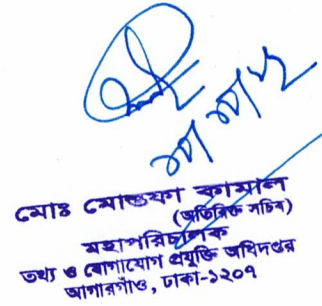 মোঃ মোস্তফা কামাল
(অতিরিক্ত সচিব)
মহাপরিচালক
তথ্য ও যোগাযোগ প্রযুক্তি অধিদপ্তর
আগারগাঁও, ঢাকা-১২০৭